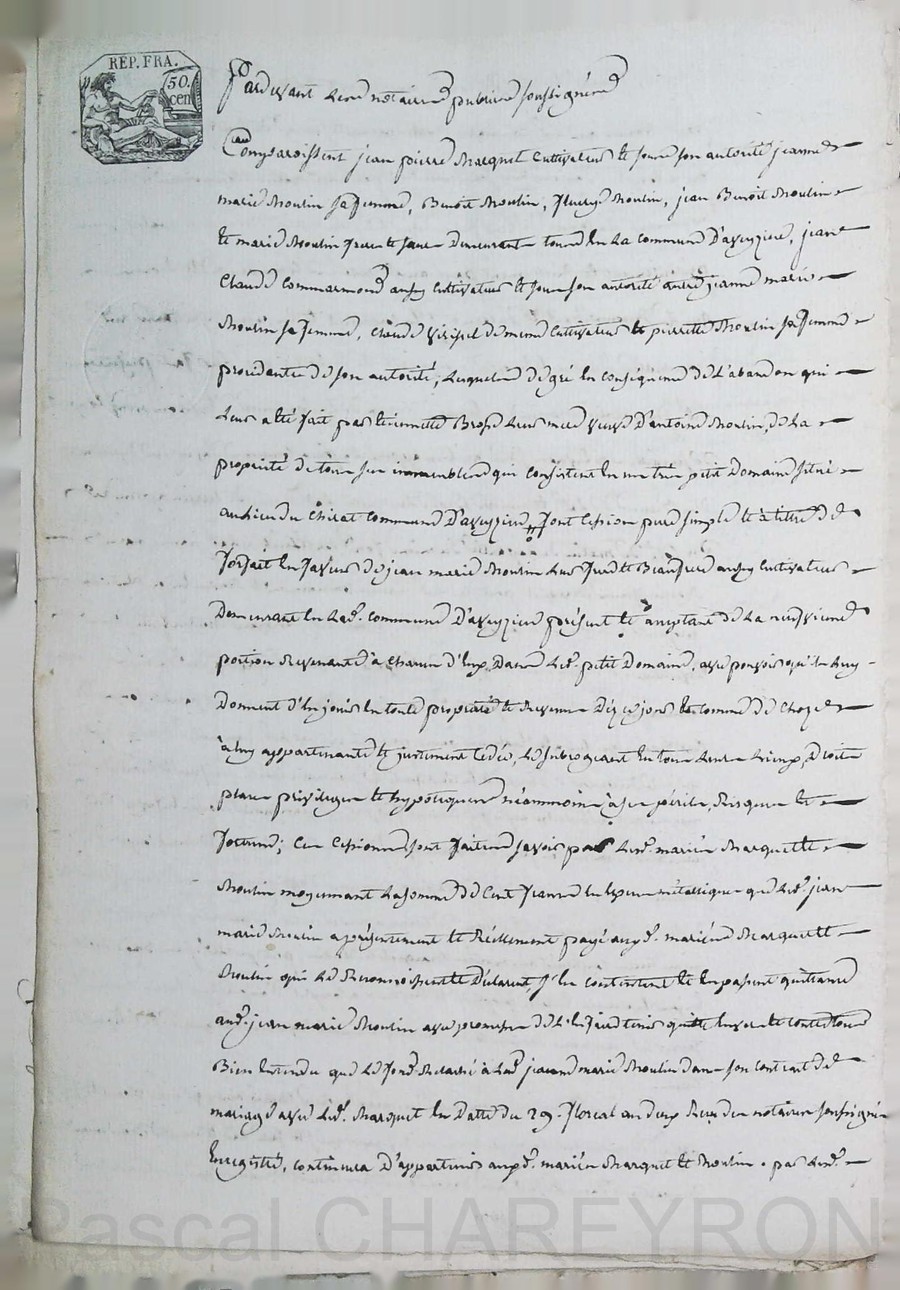 REP. FRA.
50.
cen
Pardevant Le notaire publique soussigné
Comparoissent jean pierre Marquet Cultivateur et sous son autorité jeanne
marie Moulin sa femme, Benoît Moulin, fleury Moulin, jean Benoît Moulin
et marie Moulin frere et Demeurant tous en La commune D'aveyzieu, jean
Claude Commarmond aussy Cultivateur et sous son autorité autre jeanne marie
Moulin sa femme, Claude de meme Cultivateur et pierrette Moulin sa femme
procedante de son autorité, Lesquels de gré en conséquence de L'abandon qui
Leur a été fait par Etiennette Brosse Leur mere veuve D'antoine Moulin, de La
propriété de tous ses immeubles qui consistent en un tres petit Domaine situé
au lieu du Chirat commune D'aveyzieu font Cession pure simple et à titre de
forfait en faveur de jean marie Moulin Leur frere et Beaufrere aussy Cultivateur
Demeurant en Lad. commune D'aveyzieu présent et acceptant de La neufvieme
portion Revenante à chacun d'eux Dans Led. petit Domaine, avec pouvoir qu'ils Luy
Donnent d'en jouir en toute propriété et Revenu Dez ce jour et comme de Chose
à Luy appartenante et justement cedée, Le subrogeant en tous Leurs Lieux, Droits
place privileges et hypoteques néanmoins à ses périls, Risques et
fortune; Ces Cessions sont faites savoir par Lesd. mariés Marquet et
Moulin moyennant La somme de Cent francs en Espece métallique que Led. jean
marie Moulin a présentement et Réellement payé auxd. mariés Marquet et
Moulin qui Le Reconnoissent et Déclarent, s'en contentent et En passent quittance
aud. jean marie Moulin avec promesse de L'En faire tenir quitte Envers et contre tous
Bien Entendu que Le fond Relaché à Lad. jeanne marie Moulin dans son contrat de
mariage avec Led. Marquet En Datte du 29. floreal an deux Reçu du notaire soussigné
Enregistré, continuera D'appartenir auxd. mariés Marquet et Moulin. par Led.
Pascal CHAREYRON